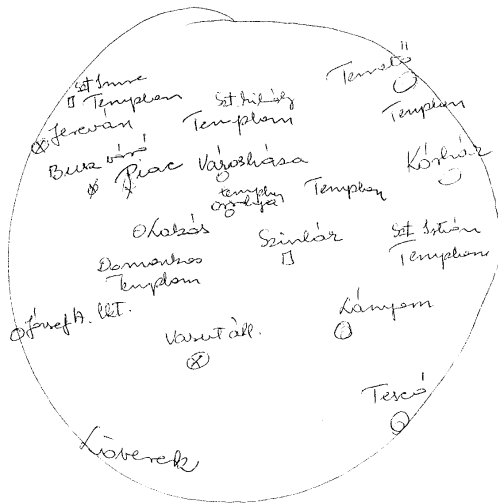 Temető
Szt Imre
Templom
Szt. Mihály
Templom
Templom
Jereván
Busz váró
Piac
Városháza
Kórház
Templom
O Lakás
Színház
Szt. István
Templom
Domonkos
Templom
József A. lkt.
Vasut áll.
Lányom
Tescó
Lőverek